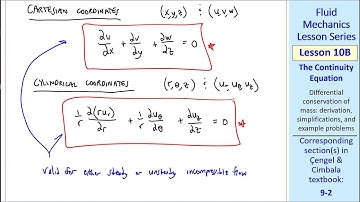 CARTESIAN COORDINATES (x,y,z) : (u,v,w)
∂u/∂x + ∂v/∂y + ∂w/∂z = 0 *
CYLINDRICAL COORDINATES (r,θ,z) : (u_r u_θ u_z)
1/r ∂(ru_r)/∂r + 1/r ∂u_θ/∂θ + ∂u_z/∂z = 0 *
valid for either steady or unsteady incompressible flow
Fluid
Mechanics
Lesson Series
Lesson 10B
The Continuity
Equation
Differential
conservation of
mass: derivation,
simplifications, and
example problems
Corresponding
section(s) in
Çengel &
Cimbala
textbook:
9-2